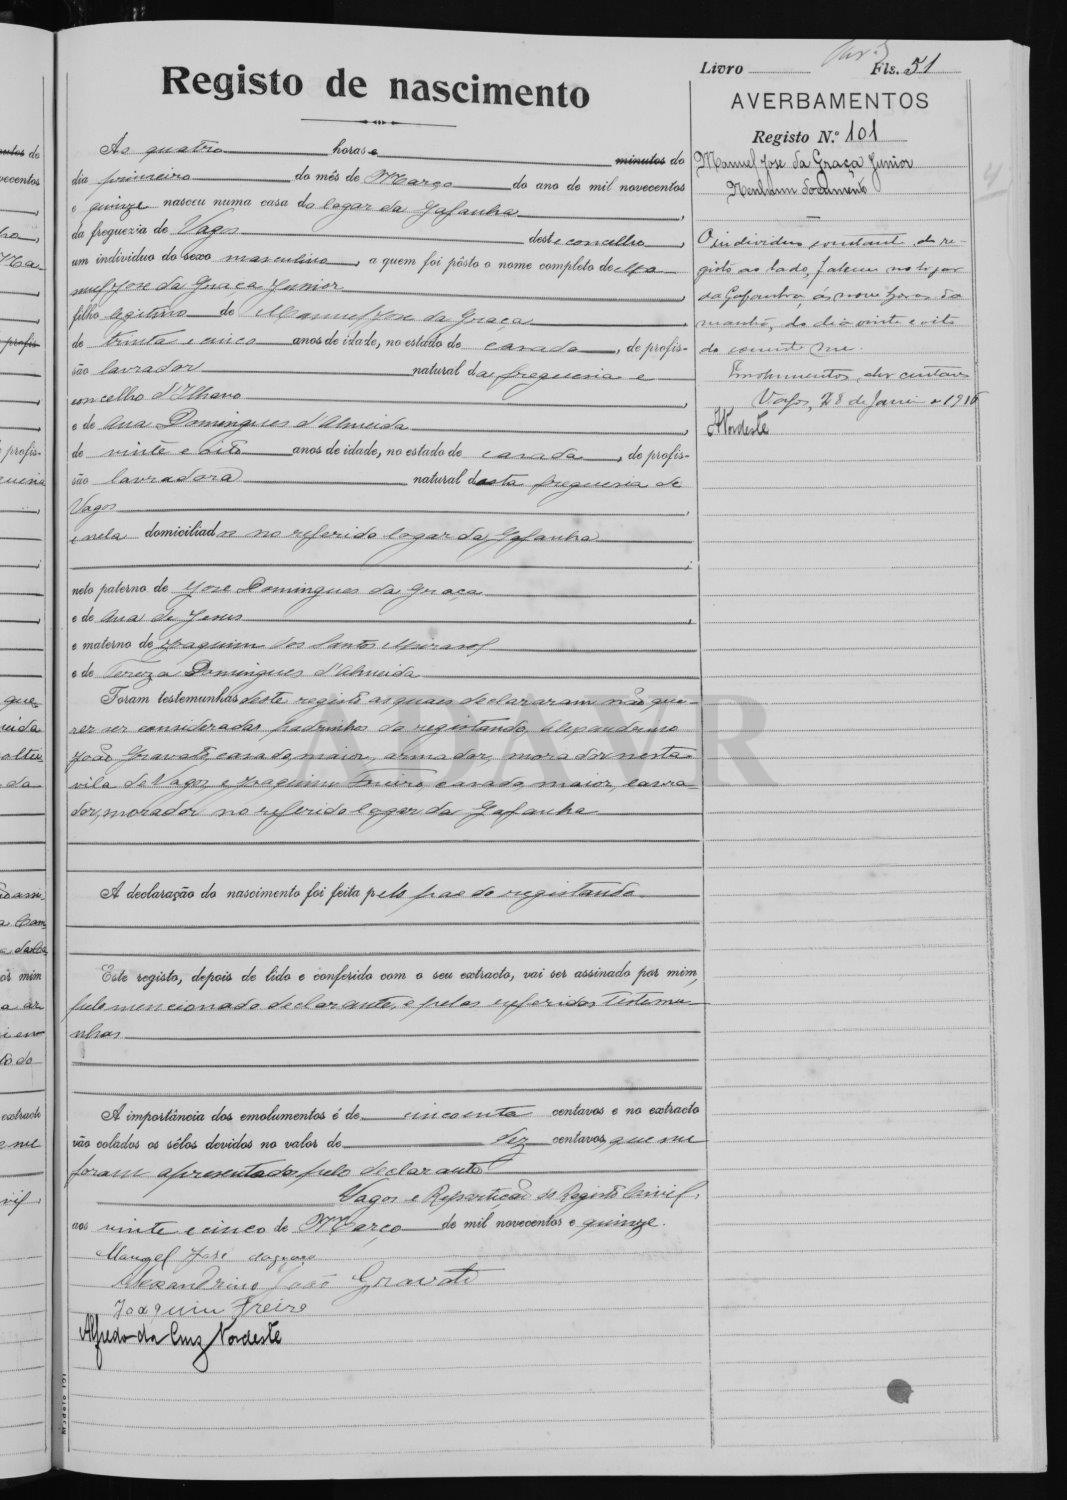 Livro Fls. 51
Registo de nascimento
AVERBAMENTOS
Registo N.º 101
Manuel Jose da Graça Junior
Nenhum documento
As quatro horas e minutos do
dia primeiro do mês de Março do ano de mil novecentos
e quinze nasceu numa casa do logar da Gafanha,
da freguezia de Vagos deste concelho,
um individuo do sexo masculino, a quem foi pôsto o nome completo de Ma
nuel Jose da Graça Junior,
filho legitimo de Manuel Jose da Graça,
de trinta e cinco anos de idade, no estado de casado, de profis-
são lavrador natural da freguesia e
concelho d'Ilhavo,
e de Ana Domingues d'Almeida,
de vinte e oito anos de idade, no estado de casada, de profis-
são lavradora natural desta freguesia de
Vagos,
e nela domiciliados no referido logar da Gafanha
;
neto paterno de Jose Domingues da Graça
e de Ana de Jesus,
e materno de Joaquim dos Santos
e de Tereza Domingues d'Almeida
Foram testemunhas deste registo as quaes declararam não que-
rer ser considerados padrinhos do registando, Alexandrino
João Gravato, casado, maior, armador, morador nesta
vila de Vagos, e Joaquim Freire, casado, maior, lavra-
dor, morador no referido logar da Gafanha
A declaração do nascimento foi feita pelo pae do registando.
Este registo, depois de lido e conferido com o seu extracto, vai ser assinado por mim,
pelo mencionado declarante, e pelas referidas testemu-
nhas
A importância dos emolumentos é de cincoenta centavos e no extracto
vão colados os sêlos devidos no valor de dez centavos, que me
foram apresentados pelo declarante
Vagos e Repartição do Registo Civil,
aos vinte e cinco de Março de mil novecentos e quinze.
Manuel José da Graça
Alexandrino João Gravato
Joaquim Freire
Alfredo da Cruz Nordeste
O individuo constante do re-
gisto ao lado, faleceu no logar
da Gafanha, ás nove horas da
manhã, do dia vinte e oito
do corrente mez.
Emolumentos, dez centavos
Vagos, 28 de Janeiro de 1916
ANordeste
ADAVR
Modelo 101